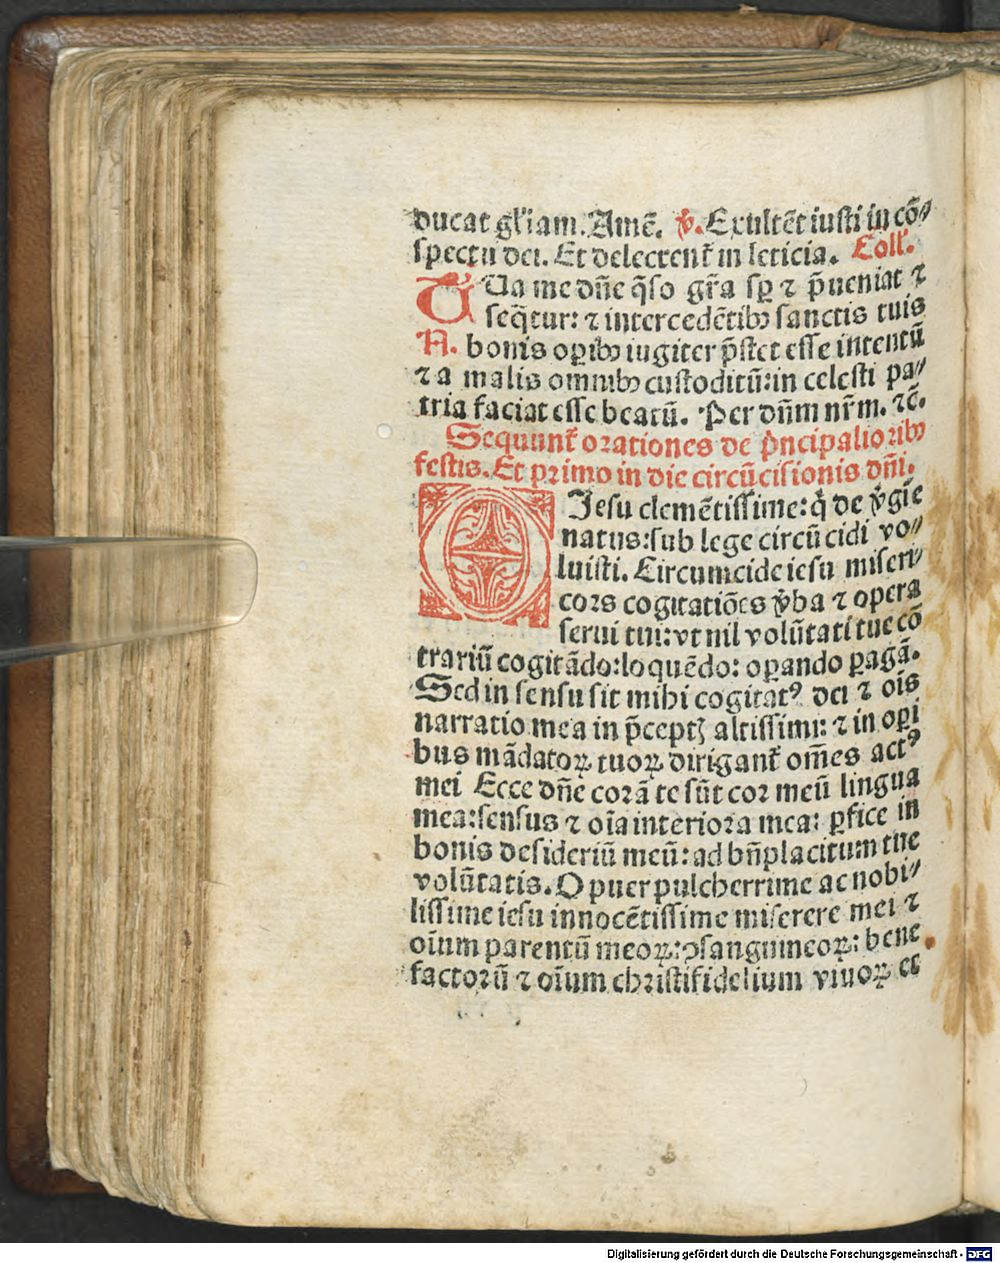 ducat gl'iam. Amē. ℣. Exultēt iusti in cō⸗
spectu dei. Et delectent᷑ in leticia. Coll'.
TUa me dn̄e q̄so gr̄a sp̄ ⁊ p̄ueniat ⁊
seq̄tur: ⁊ intercedētibꝫ sanctis tuis
N. bonis oꝑibꝫ iugiter p̄stet esse intentū
⁊ a malis omnibꝫ custoditū: in celesti pa⸗
tria faciat esse beatū. Per dn̄m nr̄m. ⁊c̄.
Sequunt᷑ orationes de p̓ncipalioribꝫ
festis. Et primo in die circūcisionis dn̄i.
O Jesu clemētissime: q̓ de v̓gīe
natus: sub lege circūcidi vo⸗
luisti. Circumcide iesu miseri⸗
cors cogitatiōes v̓ba ⁊ opera
serui tui: vt nil volūtati tue cō
trariū cogitādo: loquēdo: oꝑando ꝑagā.
Sed in sensu sit mihi cogitatꝰ dei ⁊ oīs
narratio mea in p̄ceptꝭ altissimi: ⁊ in oꝑi
bus mādatoꝝ tuoꝝ dirigant᷑ om̄es actꝰ
mei Ecce dn̄e corā te sūt cor meū lingua
mea: sensus ⁊ oīa interiora mea: ꝑfice in
bonis desideriū meū: ad bn̄placitum tue
volūtatis. O puer pulcherrime ac nobi⸗
lissime iesu innocētissime miserere mei ⁊
oīum parentū meoꝝ: ꝯsanguineoꝝ: bene
factorū ⁊ oīum christifidelium viuoꝝ et
Digitalisierung gefördert durch die Deutsche Forschungsgemeinschaft - DFG